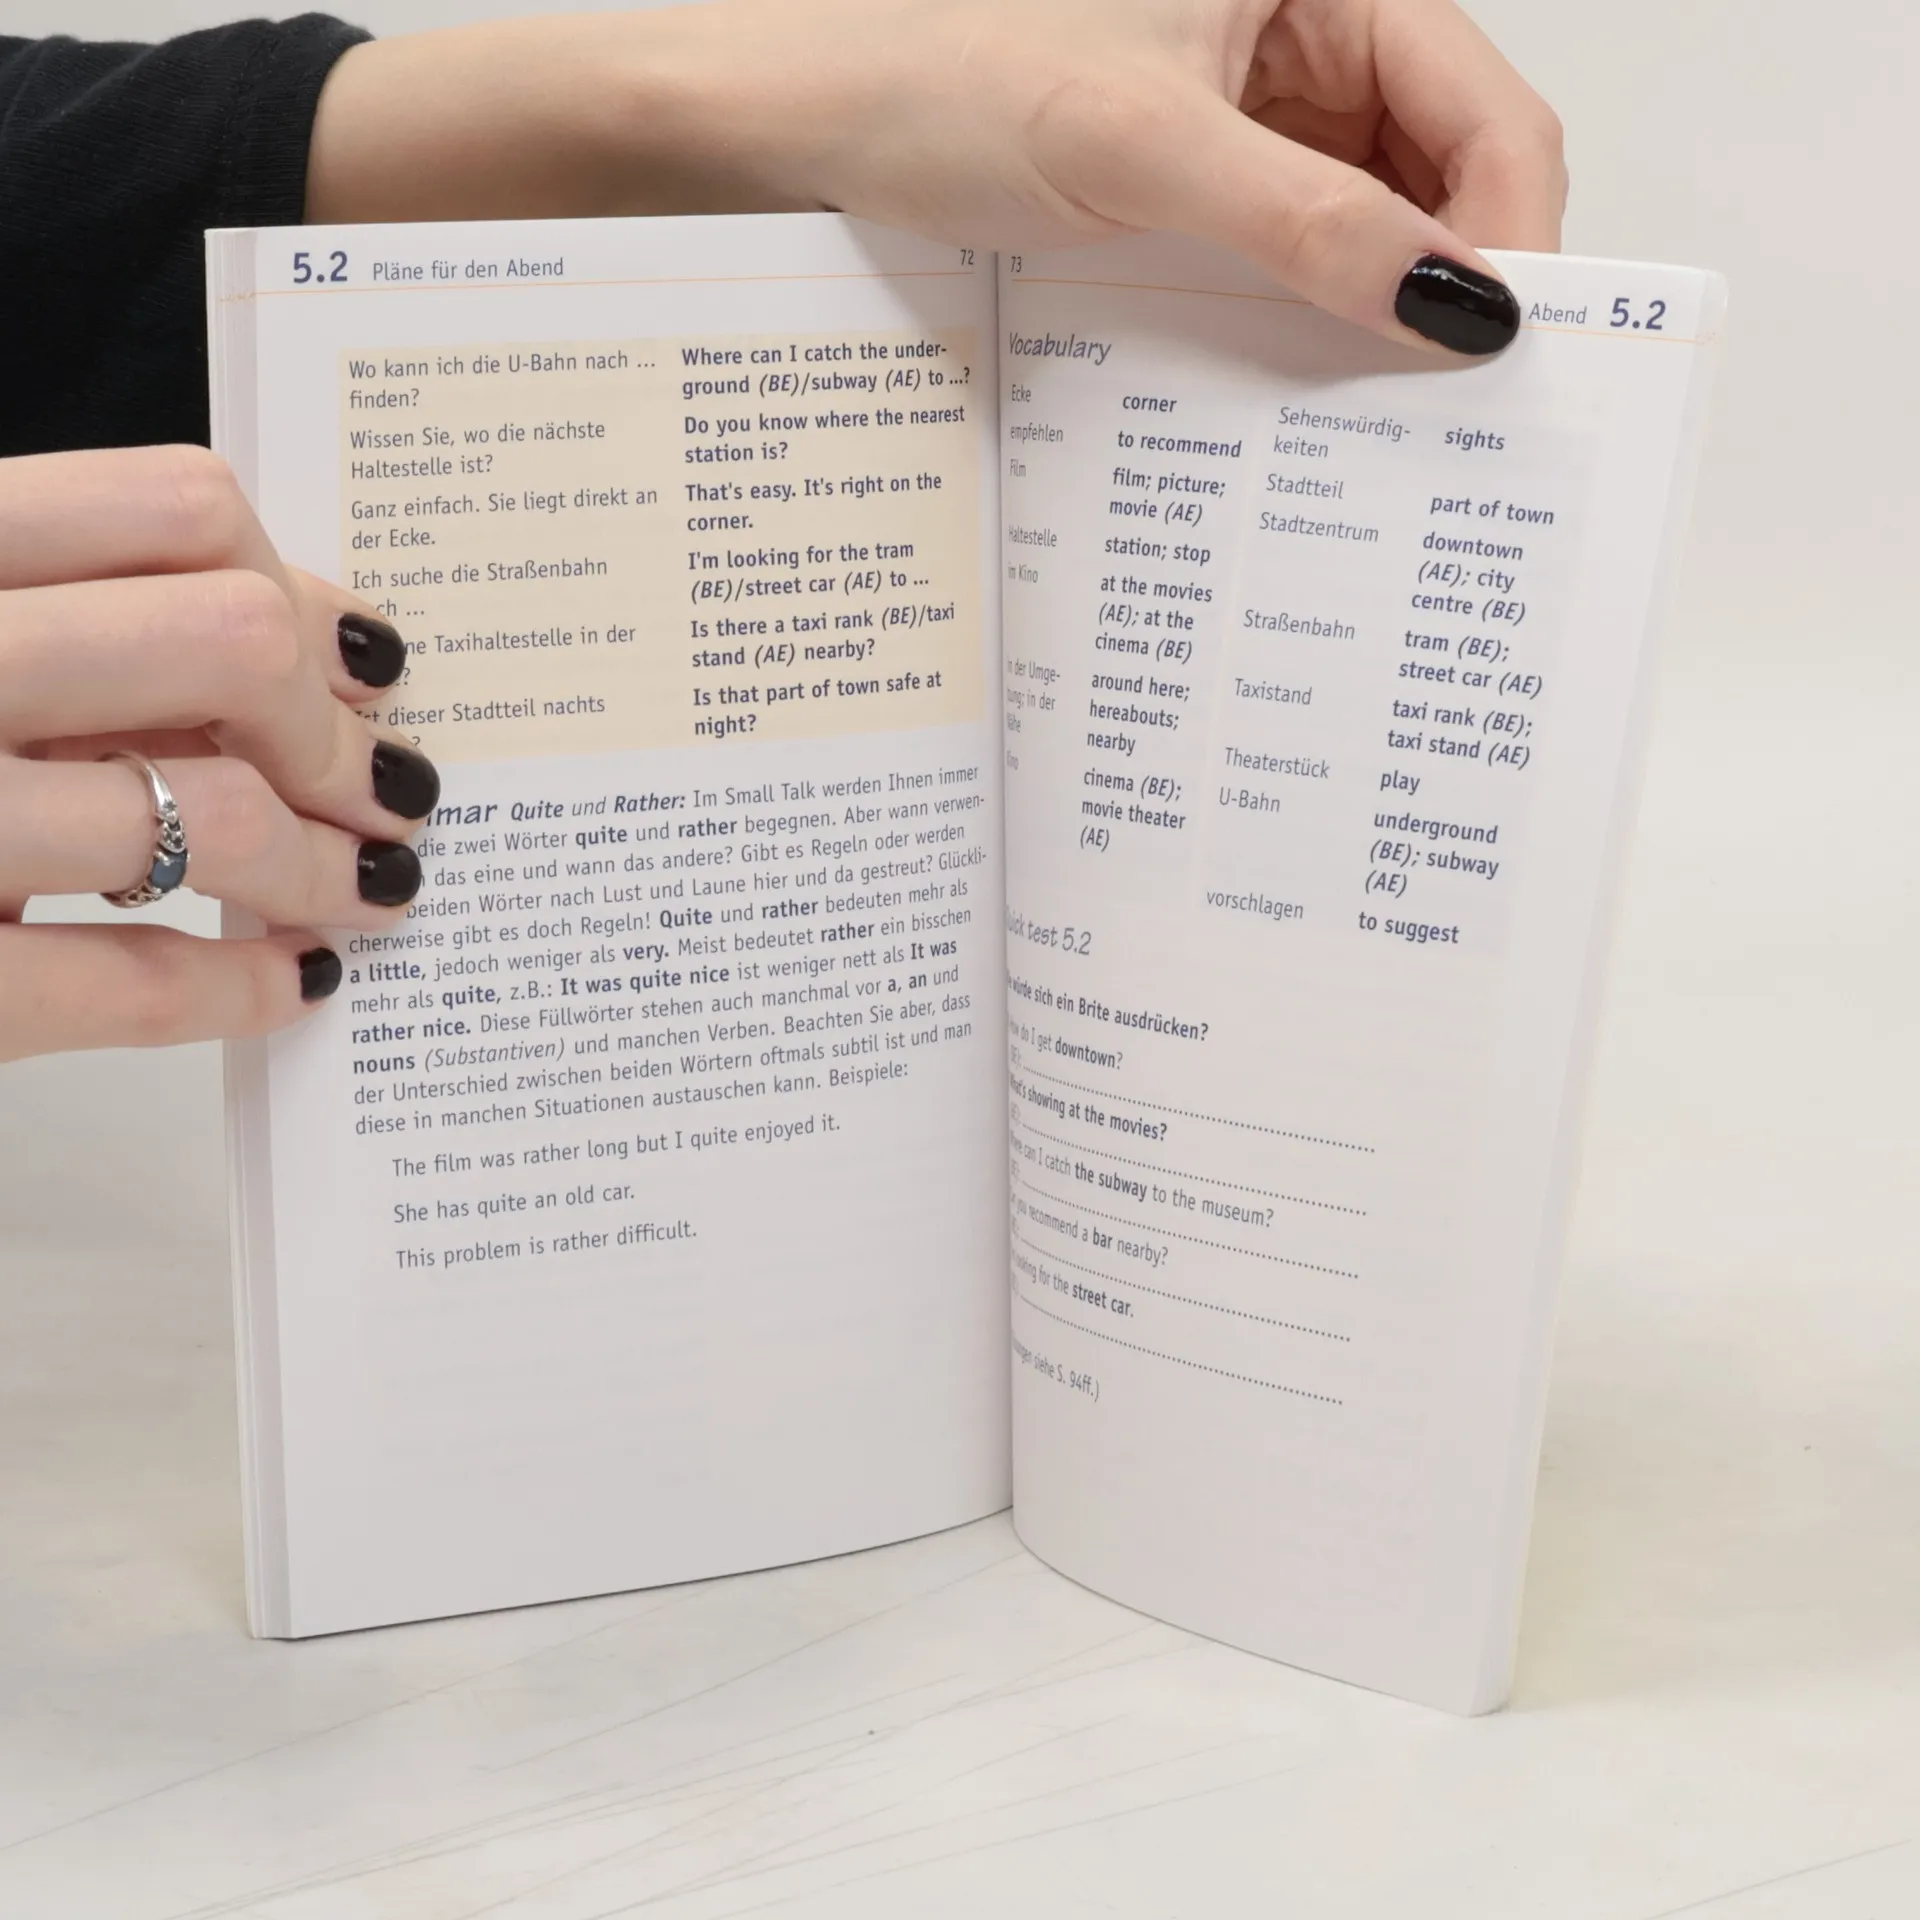 5.2 Pläne für den Abend 72
Wo kann ich die U-Bahn nach ...
finden?
Where can I catch the under-
ground (BE)/subway (AE) to ...?
Wissen Sie, wo die nächste
Haltestelle ist?
Do you know where the nearest
station is?
Ganz einfach. Sie liegt direkt an
der Ecke.
That's easy. It's right on the
corner.
Ich suche die Straßenbahn
...
I'm looking for the tram
(BE)/street car (AE) to ...
Taxihaltestelle in der
?
Is there a taxi rank (BE)/taxi
stand (AE) nearby?
dieser Stadtteil nachts
?
Is that part of town safe at
night?
Quite und Rather: Im Small Talk werden Ihnen immer
die zwei Wörter quite und rather begegnen. Aber wann verwen-
das eine und wann das andere? Gibt es Regeln oder werden
beiden Wörter nach Lust und Laune hier und da gestreut? Glückli-
cherweise gibt es doch Regeln! Quite und rather bedeuten mehr als
a little, jedoch weniger als very. Meist bedeutet rather ein bisschen
mehr als quite, z.B.: It was quite nice ist weniger nett als It was
rather nice. Diese Füllwörter stehen auch manchmal vor a, an und
nouns (Substantiven) und manchen Verben. Beachten Sie aber, dass
der Unterschied zwischen beiden Wörtern oftmals subtil ist und man
diese in manchen Situationen austauschen kann. Beispiele:
The film was rather long but I quite enjoyed it.
She has quite an old car.
This problem is rather difficult.
73 Abend 5.2
Vocabulary
Ecke corner
empfehlen to recommend
Film film; picture;
movie (AE)
Haltestelle station; stop
im Kino at the movies
(AE); at the
cinema (BE)
in der Umge- around here;
in der hereabouts;
nearby
Kino cinema (BE);
movie theater
(AE)
Sehenswürdig- sights
keiten
Stadtteil part of town
Stadtzentrum downtown
(AE); city
centre (BE)
Straßenbahn tram (BE);
street car (AE)
Taxistand taxi rank (BE);
taxi stand (AE)
Theaterstück play
U-Bahn underground
(BE); subway
(AE)
vorschlagen to suggest
test 5.2
würde sich ein Brite ausdrücken?
do I get downtown?
showing at the movies?
can I catch the subway to the museum?
you recommend a bar nearby?
for the street car.
siehe S. 94ff.)